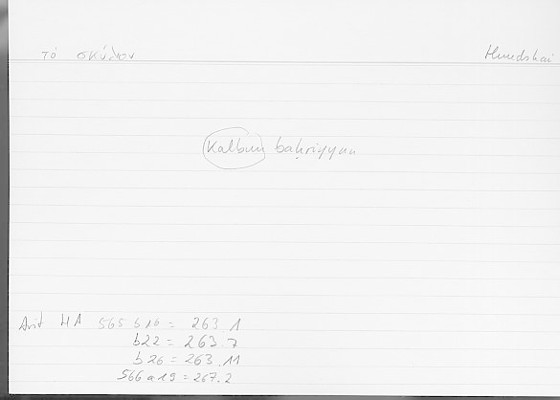 τὸ σκύλον Hundshai
Kalbun baḥrīyyun
Arist HA 565 b 16 = 263.1
b22 = 263.7
b 26 = 263.11
566 a 19 = 267.2